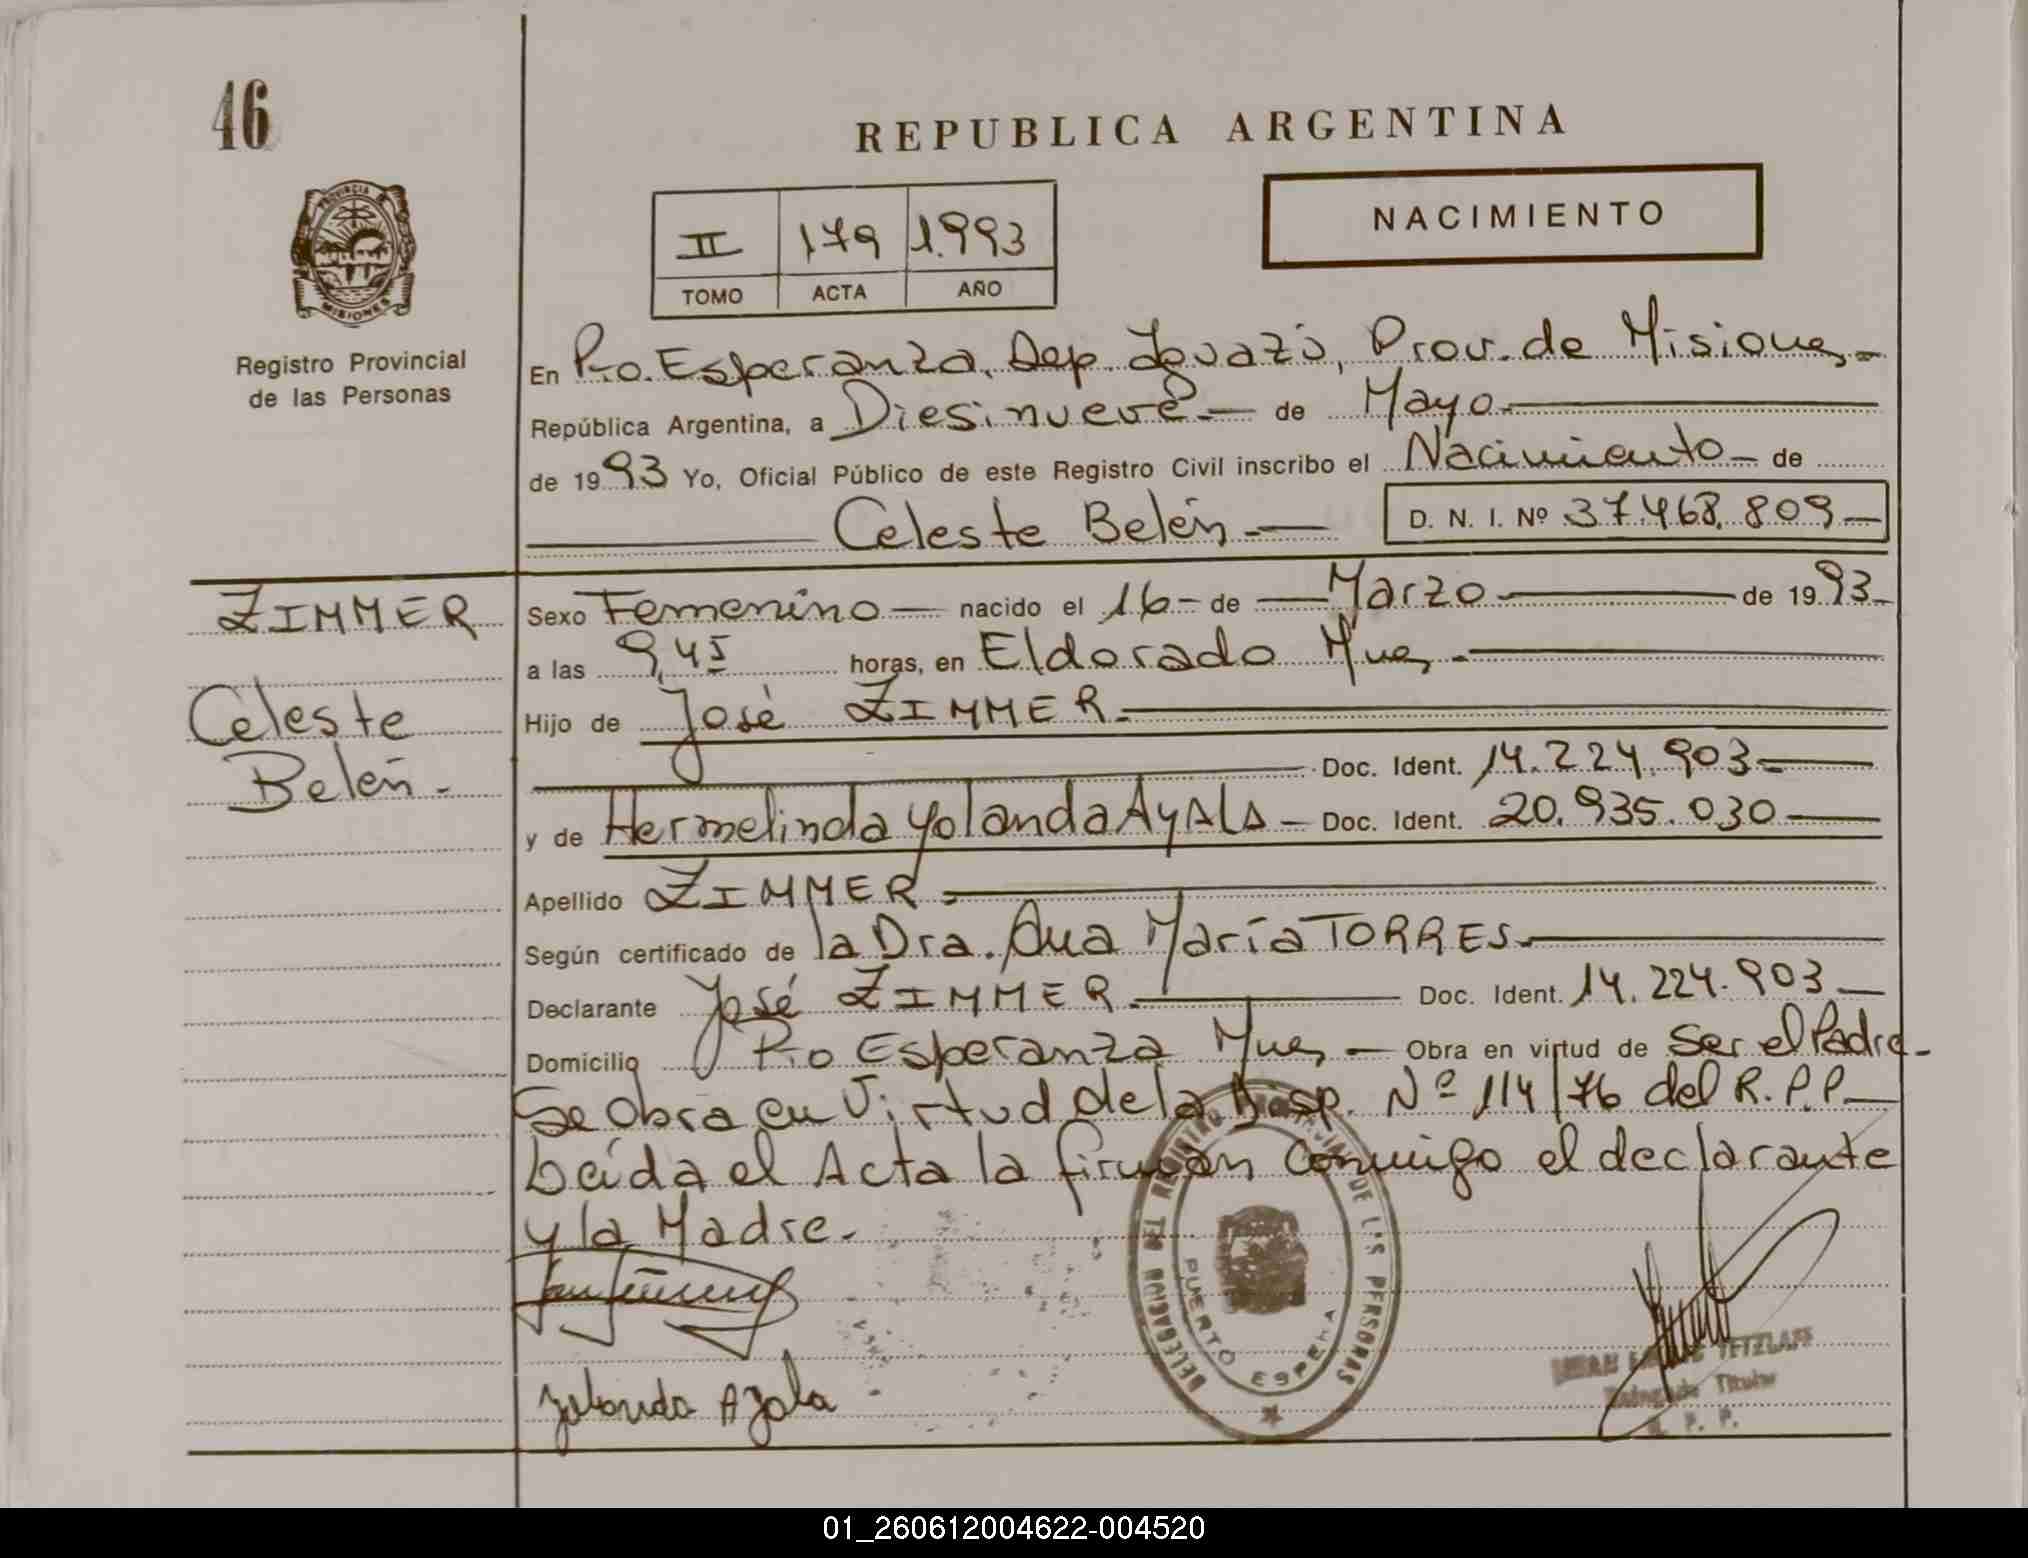 46
REPUBLICA ARGENTINA
NACIMIENTO
II 179 1.993
TOMO ACTA AÑO
PROVINCIA DE MISIONES
Registro Provincial
de las Personas
En Pto. Esperanza, Dep. Iguazú, Prov. de Misiones,-
República Argentina, a Diesinueve - de Mayo -
de 1993 Yo, Oficial Público de este Registro Civil inscribo el Nacimiento - de
Celeste Belén - D. N. I. Nº 37.468.809 -
ZIMMER
Celeste
Belén -
Sexo Femenino - nacido el 16 - de - Marzo - de 1993 -
a las 9,45 horas, en Eldorado Mnes, -
Hijo de José ZIMMER -
Doc. Ident. 14.224.903 -
y de Hermelinda Yolanda AyAlA - Doc. Ident. 20.935.030 -
Apellido ZIMMER -
Según certificado de la Dra. Ana María TORRES -
Declarante José ZIMMER - Doc. Ident. 14.224.903 -
Domicilio Pto Esperanza Mnes, - Obra en virtud de Ser el Padre -
Se Obra en Virtud de la Disp. Nº 114/76 del R.P.P. -
Leída el Acta la firman conmigo el declarante
y la Madre.
Yolanda Ayala
DELEGACION DEL REGISTRO PROVINCIAL DE LAS PERSONAS
PUERTO ESPERANZA
TETZLAFF
Delegado Titular
R. P. P.
01_260612004622-004520